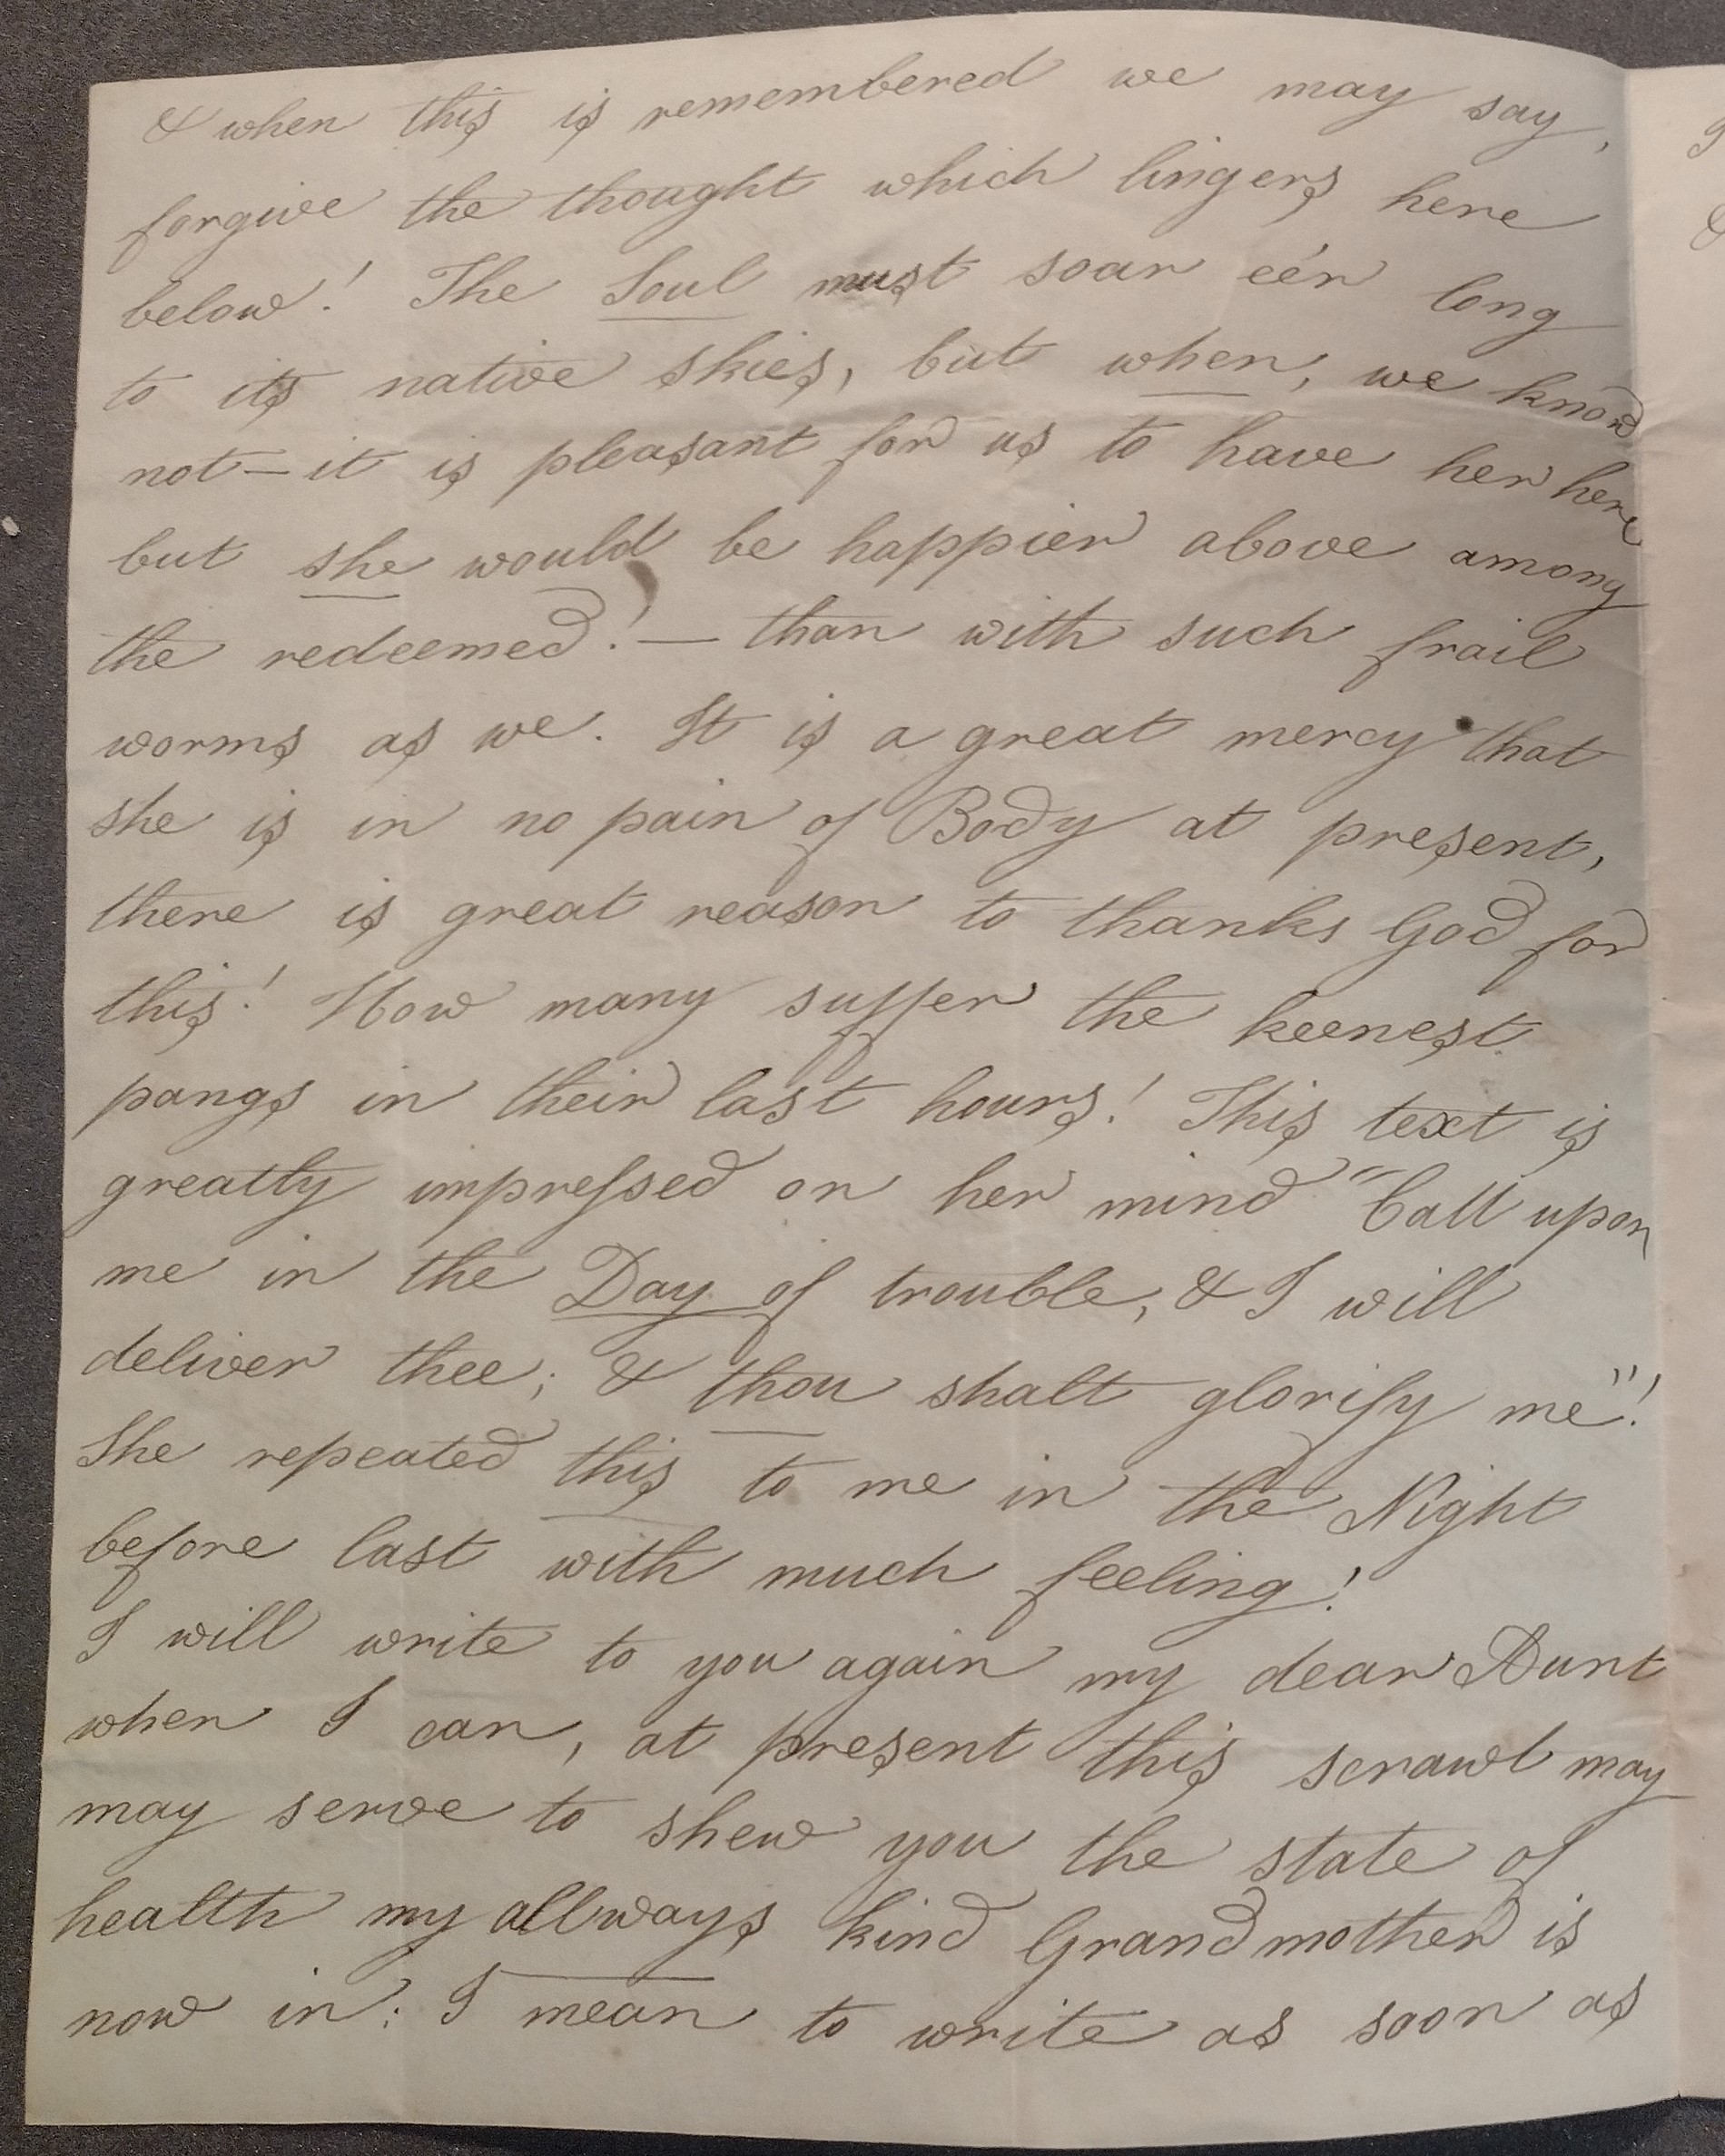 & when this is remembered we may say,
forgive the thought which lingers here
below! The Soul must soar eér long
to its native skies, but when, we know
not – it is pleasant for us to have her here
but she would be happier above among
the redeemed! — than with such frail
worms as we. It is a great mercy that
she is in no pain of Body at present,
there is great reason to thanks God for
this! How many suffer the keenest
pangs in their last hours! This text is
greatly impressed on her mind "Call upon
me in the Day of trouble, & I will
deliver thee; & thou shalt glorify me"!
She repeated this to me in the Night
before last with much feeling!
I will write to you again my dear Aunt
when I can, at present this scrawl may
may serve to shew you the state of
health my allways kind Grandmother is
now in: I mean to write as soon as